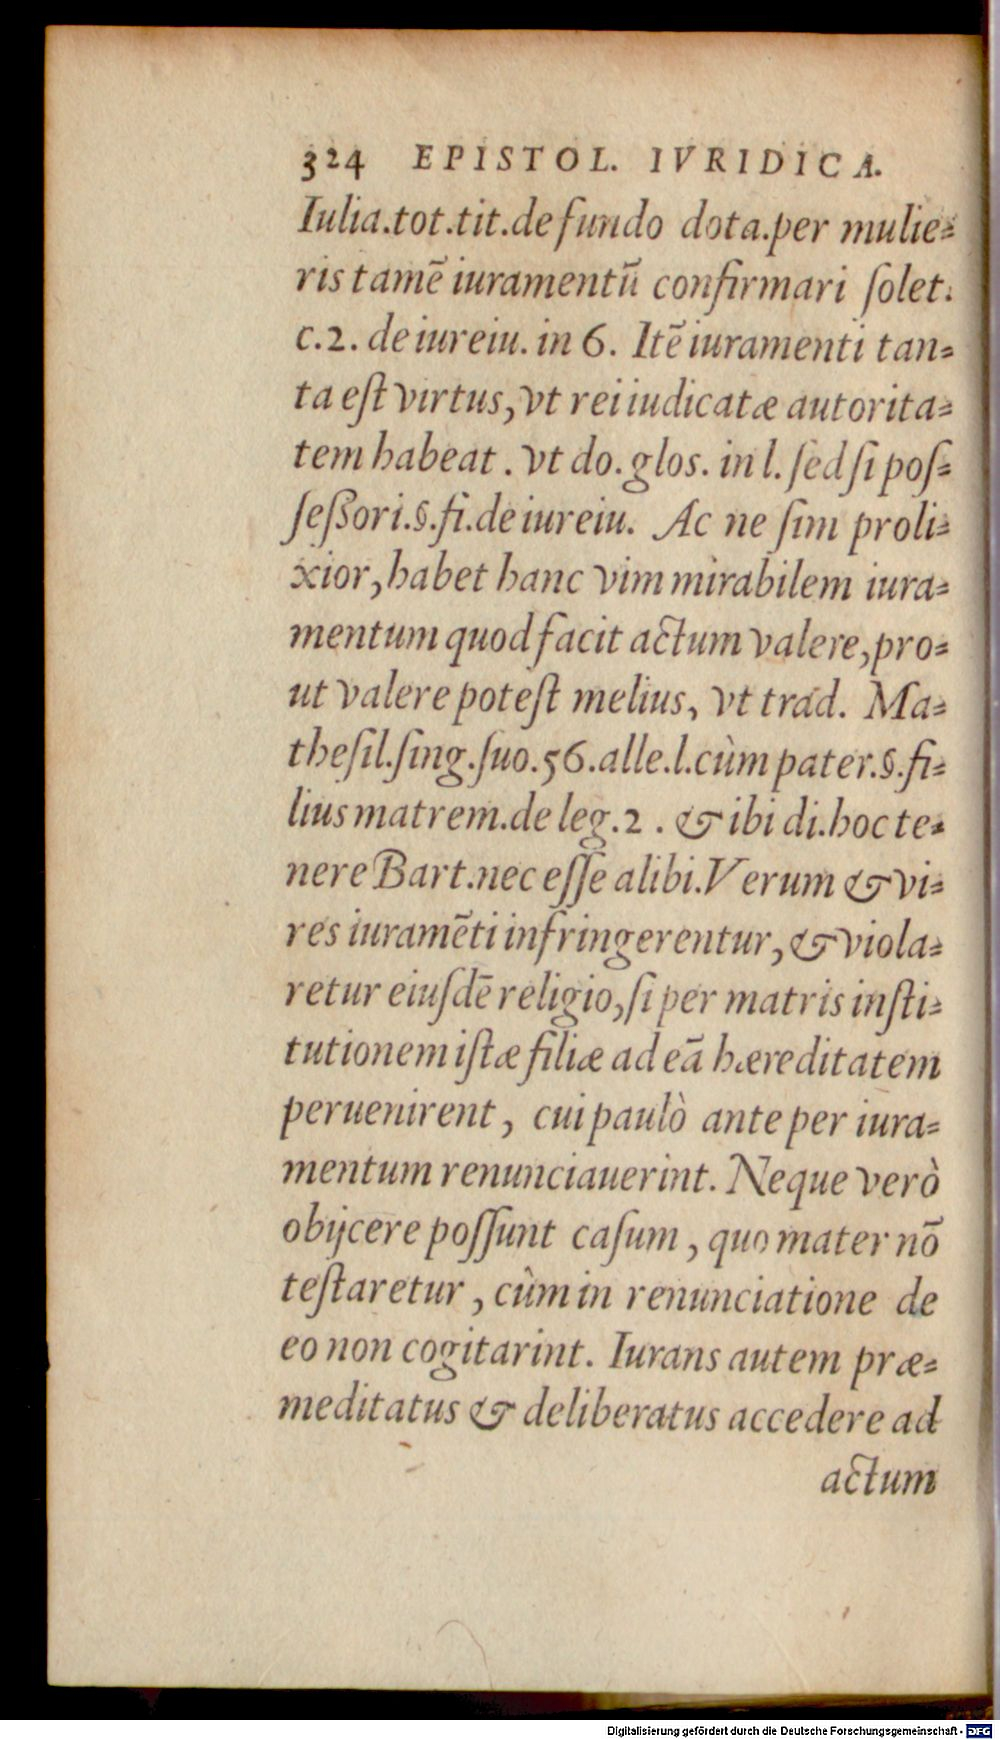 324 EPISTOL. IVRIDICA.
Iulia.tot.tit.de fundo dota.per mulie⸗
ris tamē iuramentū confirmari ſolet.
c.2. de iureiu. in 6. Itē iuramenti tan⸗
ta eſt virtus, vt rei iudicatæ autorita⸗
tem habeat . vt do. glos. in l. ſed ſi poſ⸗
ſeßori.§.fi.de iureiu. Ac ne ſim proli⸗
xior, habet hanc vim mirabilem iura⸗
mentum quod facit actum valere, pro⸗
ut valere poteſt melius, vt trad. Ma⸗
theſil.ſing.ſuo.56.alle.l.cùm pater.§.fi⸗
lius matrem.de leg.2 . & ibi di.hoc te⸗
nere Bart.nec eſſe alibi.Verum & vi⸗
res iuramēti infringerentur, & viola⸗
retur eiuſdē religio, ſi per matris inſti⸗
tutionem iſtæ filiæ ad eā hæreditatem
peruenirent , cui paulò ante per iura⸗
mentum renunciauerint. Neque verò
obijcere poſſunt caſum , quo mater nō
teſtaretur , cùm in renunciatione de
eo non cogitarint. Iurans autem præ⸗
meditatus & deliberatus accedere ad
actum
Digitalisierung gefördert durch die Deutsche Forschungsgemeinschaft - DFG